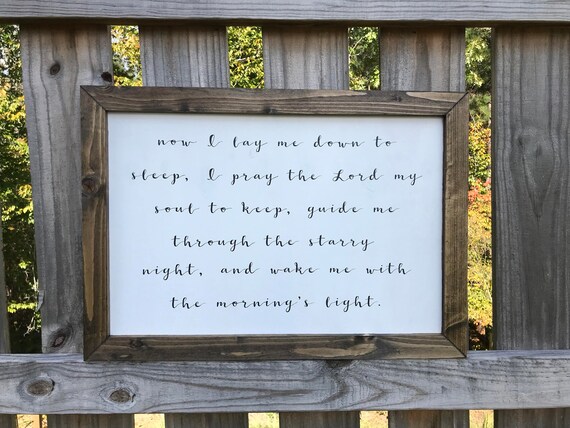 now I lay me down to
sleep, I pray the Lord my
soul to keep, guide me
through the starry
night, and wake me with
the morning's light.